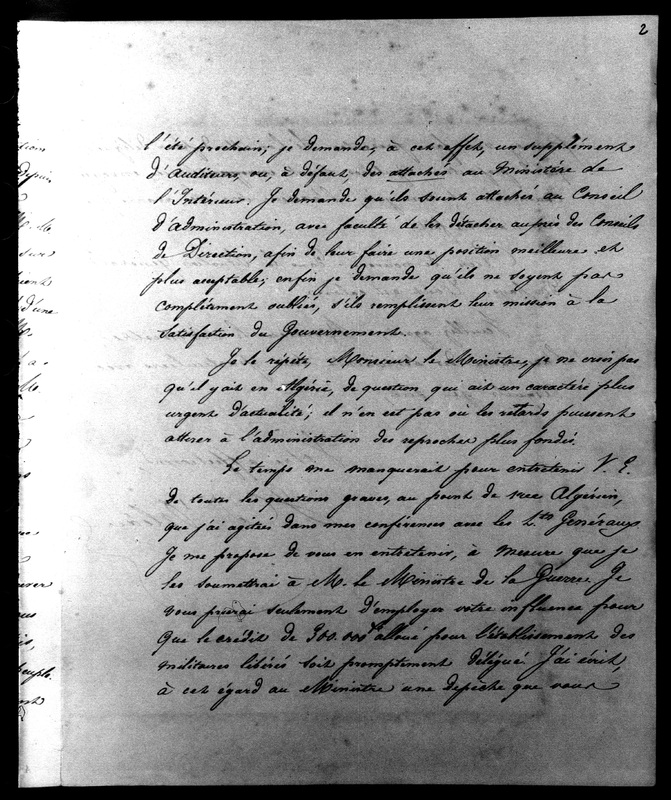 2
l'été prochain; je demande, à cet effet, un supplément
d'Auditeurs, ou, à défaut des attachés au Ministère de
l'Intérieur. Je demande qu'ils soient attachés au Conseil
d'administration, avec faculté de les détacher auprès des Conseils
de Direction, afin de leur faire une position meilleure et
plus acceptable; enfin je demande qu'ils ne soyent pas
complétement oubliés, s'ils remplissent leur mission à la
satisfaction du Gouvernement.
Je le répète, Monsieur le Ministre, je ne crois pas
qu'il y ait en Algérie, de question qui ait un caractère plus
urgent d'actualité; il n'en est pas où les retards puissent
attirer à l'administration des reproches plus fondés.
Le temps me manquerait pour entretenir V. E.
de toutes les questions graves, au point de vue Algérien,
que j'ai agitées dans mes conférences avec les Lts Généraux
Je me propose de vous en entretenir, à mesure que je
les soumettrai à M. le Ministre de la Guerre. Je
vous prierai seulement d'employer votre influence pour
que le crédit de 300.000f alloué pour l'établissement des
militaires libérés soit promptement délégué. J'ai écrit,
à cet égard au Ministre une dépêche que vous